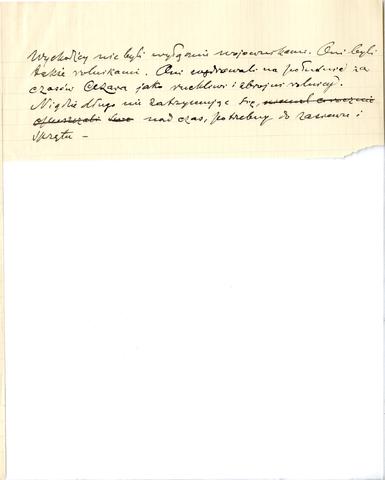 Wychodźcy nie byli wyłącznie wojownikami. Oni byli
także rolnikami. Oni wędrowali na południe za
czasów Cezara jako ruchliwi i zbrojni rolnicy.
Nigdzie długo nie zatrzymując się,
nad czas, potrzebny do zasiewu i
sprzętu –